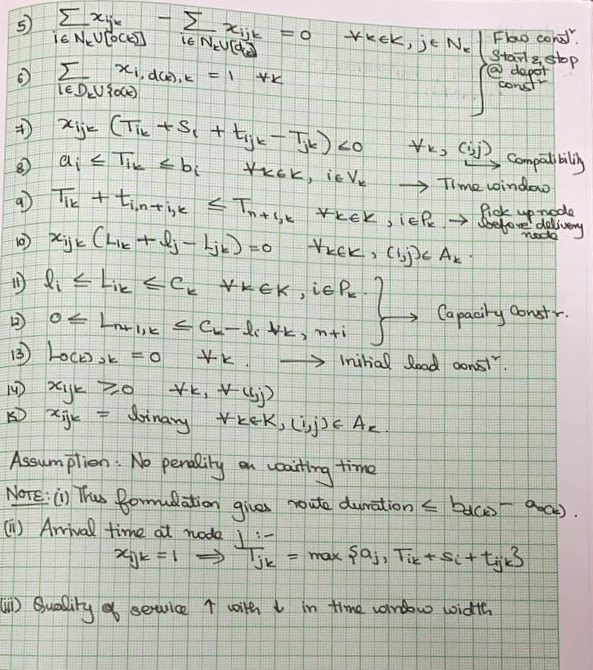 5) ∑_{i∈N_k∪[o(k)]} x_{ijk} − ∑_{i∈N_k∪[d_k]} x_{ijk} = 0 ∀k∈K, j∈N_k
Flow constr.
Start & stop
@ depot
constr
6) ∑_{i∈D_k∪{o(k)}} x_{i,d(k),k} = 1 ∀k
7) x_{ijk} (T_{ik} + s_i + t_{ijk} − T_{jk}) ≤0 ∀k, (i,j) → Compatibility
8) a_i ≤ T_{ik} ≤ b_i ∀k∈K, i∈V_k → Time window
9) T_{ik} + t_{i,n+i,k} ≤ T_{n+i,k} ∀k∈K, i∈P_k → Pick up node
before delivery
node
10) x_{ijk} (L_{ik} + l_j − L_{jk}) = 0 ∀k∈K, (i,j)∈A_k.
11) l_i ≤ L_{ik} ≤ C_k ∀k∈K, i∈P_k.
12) 0 ≤ L_{n+i,k} ≤ C_k − l_i ∀k, n+i
→ Capacity Constr.
13) L_{o(k),k} = 0 ∀k. → Initial load constr.
14) x_{ijk} ≥0 ∀k, ∀(i,j)
15) x_{ijk} = binary ∀k∈K, (i,j)∈A_k.
Assumption: No penality on waiting time
NOTE: (i) This formulation gives route duration ≤ b_{d(k)} − a_{o(k)}.
(ii) Arrival time at node j :-
x_{ijk} = 1 ⇒ T_{jk} = max {a_j, T_{ik} + s_i + t_{ijk}}
(iii) Quality of service ↑ with ↓ in time window width